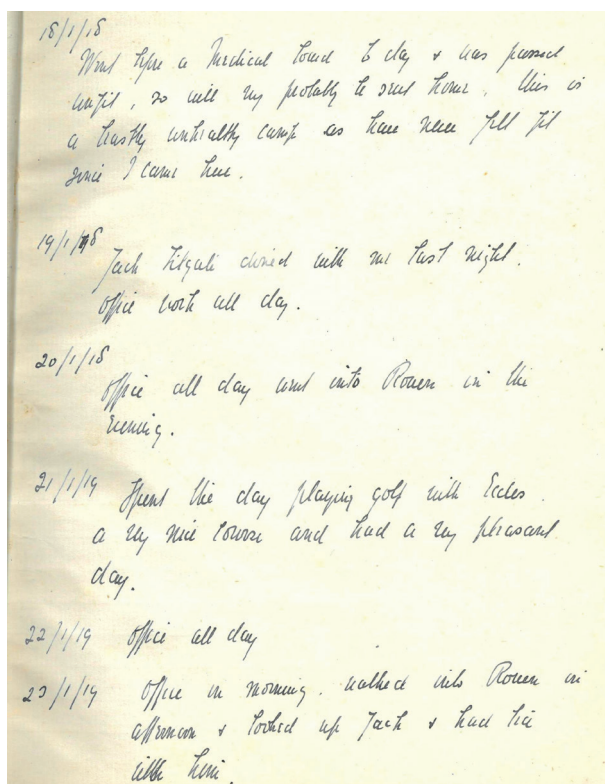 18/1/18
Went before a Medical board to day & was passed
unfit, so will very probably be sent home. this is
a beastly unhealthy camp as have never felt fit
since I came here.
19/1/18
Jack dined with me last night.
Office work all day.
20/1/18
Office all day went into Rouen in the
Evening.
21/1/19 Spent the day playing golf with Eccles.
a very nice course and had a very pleasant
day.
22/1/19 Office all day
23/1/19 Office in morning. walked into Rouen in
afternoon & looked up Jack & had tea
with him.